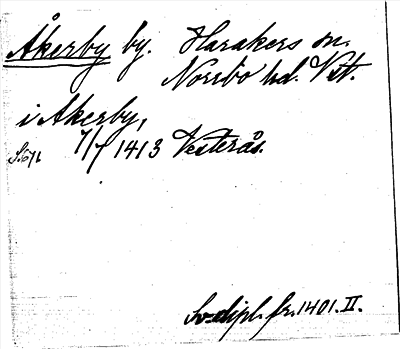 Åkerby by. Harakers sn.
Norrbo hd. Vstm.
i Akerby,
S. 671 7/7 1413 Vesterås.
Sv. dipl. fr. 1401. II.